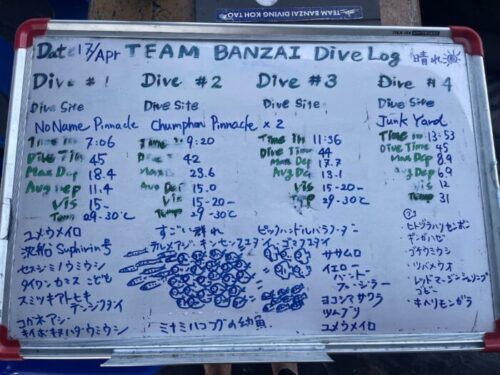 TEAM BANZAI DIVING KOH TAO
Date 17/Apr TEAM BANZAI Dive Log 晴れ
Dive #1
Dive Site
NoName Pinnacle
Time in 7:06
Dive Time 45
Max Dep 18.4
Avg Dep 11.4
Vis 15~
Temp 29-30℃
ユメウメイロ
沈船 Suphirin号
セスジミノウミウシ
タイワンカマス こども
スミツキアトヒキ
テンジクダイ
コガネアジ
キイボキヌハダウミウシ
Dive #2
Dive Site
Chumphon Pinnacle x 2
Time in 9:20
Dive T 42
Max Dep 23.6
Avg Dep 15.0
Vis 15-20~
Temp 29-30℃
すごい群れ
テルメアジ・キンセンフエダイ
ミナミハコフグの幼魚
Dive #3
Dive Site
Time in 11:36
Dive Time 44
Max Dep 17.7
Avg Dep 13.1
Vis 15-20~
Temp 29-30℃
ピックハンドルバラクーダ
イ・ゴマフエダイ
ササムロ
イエロー
バンド
フュージラー
ヨコシマサワラ
ツムブリ
ユメウメイロ
Dive #4
Dive Site
Junk Yard
Time in 13:53
Dive Time 45
Max Dep 8.9
Avg Dep 6.9
Vis 12
Temp 31
ヒトヅラハリセンボン
ギンガハゼ
ツバメウオ
レッドマージンシュリンプ
ゴビー
キヘリモンガラ